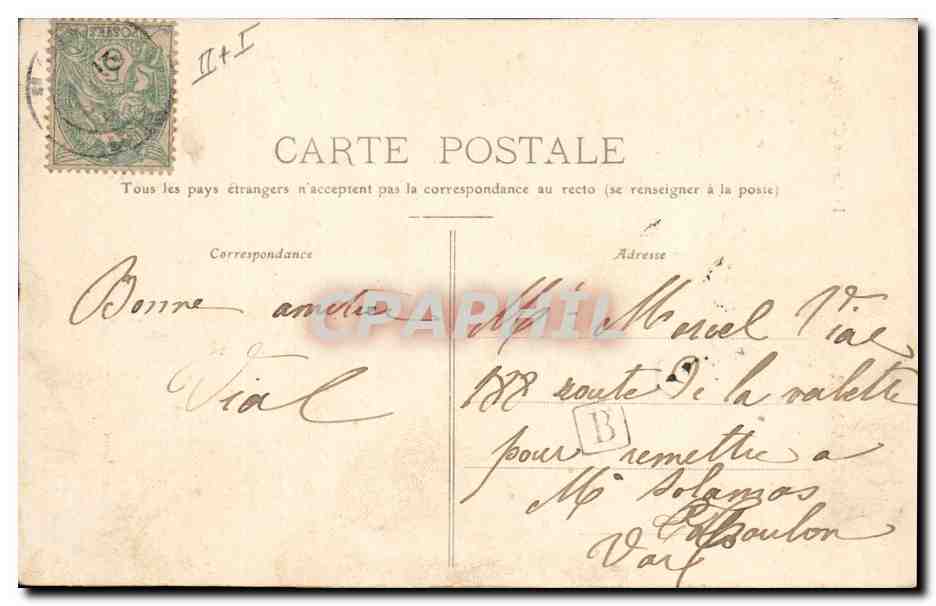 II + I
CARTE POSTALE
Tous les pays étrangers n'acceptent pas la correspondance au recto (se renseigner à la poste)
Correspondance
Bonne amitié
Vial
Adresse
Mr Marcel Vial
188 route de la valette
pour remettre a
Mr Solamas
Toulon
Var
B
CPAPHIL